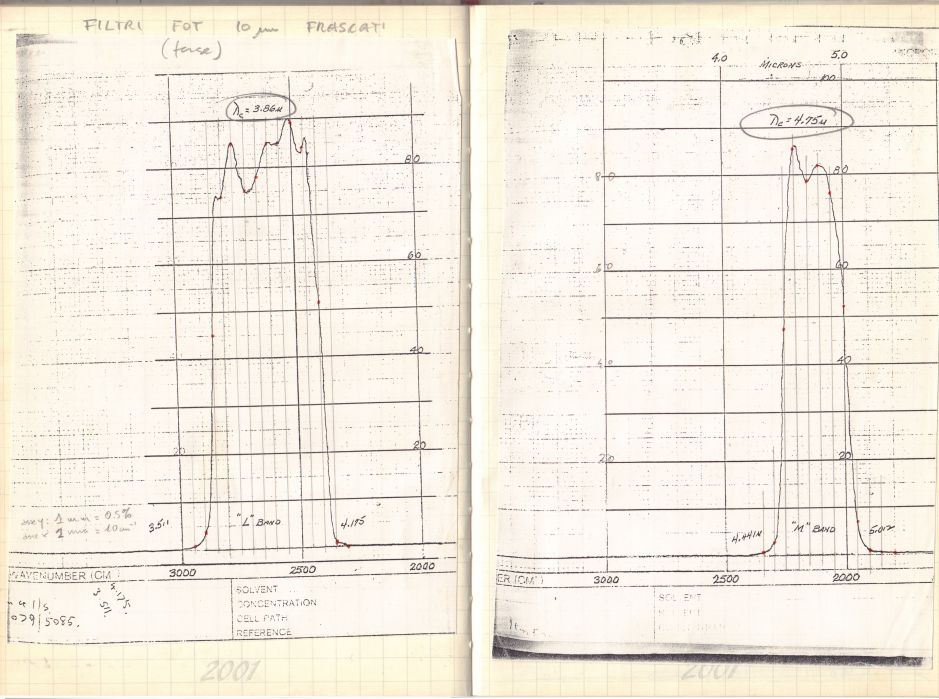 FILTRI FOT 10 µm FRASCATI
(forse)
λc = 3.86µ
80
60
40
20
20
asse y: 1 mm = 0.5%
asse x 1 mm = 10 cm⁻¹
3.511
"L" BAND
4.175
WAVENUMBER (CM
3000
2500
2000
4.175.
3.511.
SOLVENT
CONCENTRATION
CELL PATH
REFERENCE
2001
4.0
MICRONS
5.0
λc = 4.75µ
80
80
60
60
40
40
20
20
4.441
"M" BAND
5.012
ER (CM⁻¹)
3000
2500
2000
SOLVENT
2001